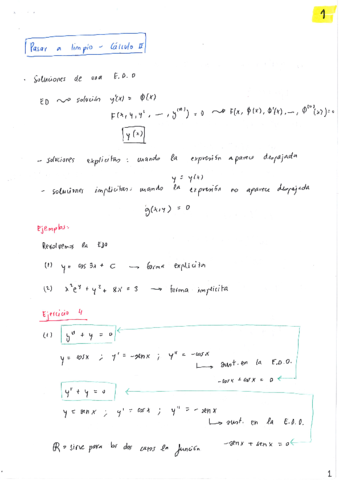 1
Pasar a limpio - Cálculo II
- Soluciones de una E.D.O
ED ⤳ solución y(x) = Φ(x)
F(x, y, y', ..., y^(n)) = 0 ⤳ F(x, Φ(x), Φ'(x), ..., Φ^(n)(x)) = 0
y(x)
- soluciones explícitas : cuando la expresión aparece despejada
y = y(x)
- soluciones implícitas : cuando la expresión no aparece despejada
g(x,y) = 0
Ejemplos:
Resolvemos la EDO
(1) y = cos 3x + C → forma explícita
(2) x²e^y + y² + 8x = 3 → forma implícita
Ejercicio 4
(1) y'' + y = 0
y = cos x ; y' = -sen x ; y'' = -cos x
↳ sust. en la E.D.O.
-cos x + cos x = 0
y'' + y = 0
y = sen x ; y' = cos x ; y'' = -sen x
↳ sust. en la E.D.O.
-sen x + sen x = 0
R = sirve para los dos casos la función
1